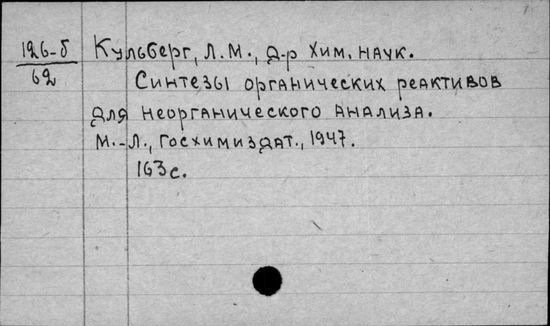 126-б
62
Кульберг, Л.М., д-р хим. наук.
Синтезы органических реактивов
для неорганического анализа.
М.-Л., Госхимиздат., 1947.
163с.